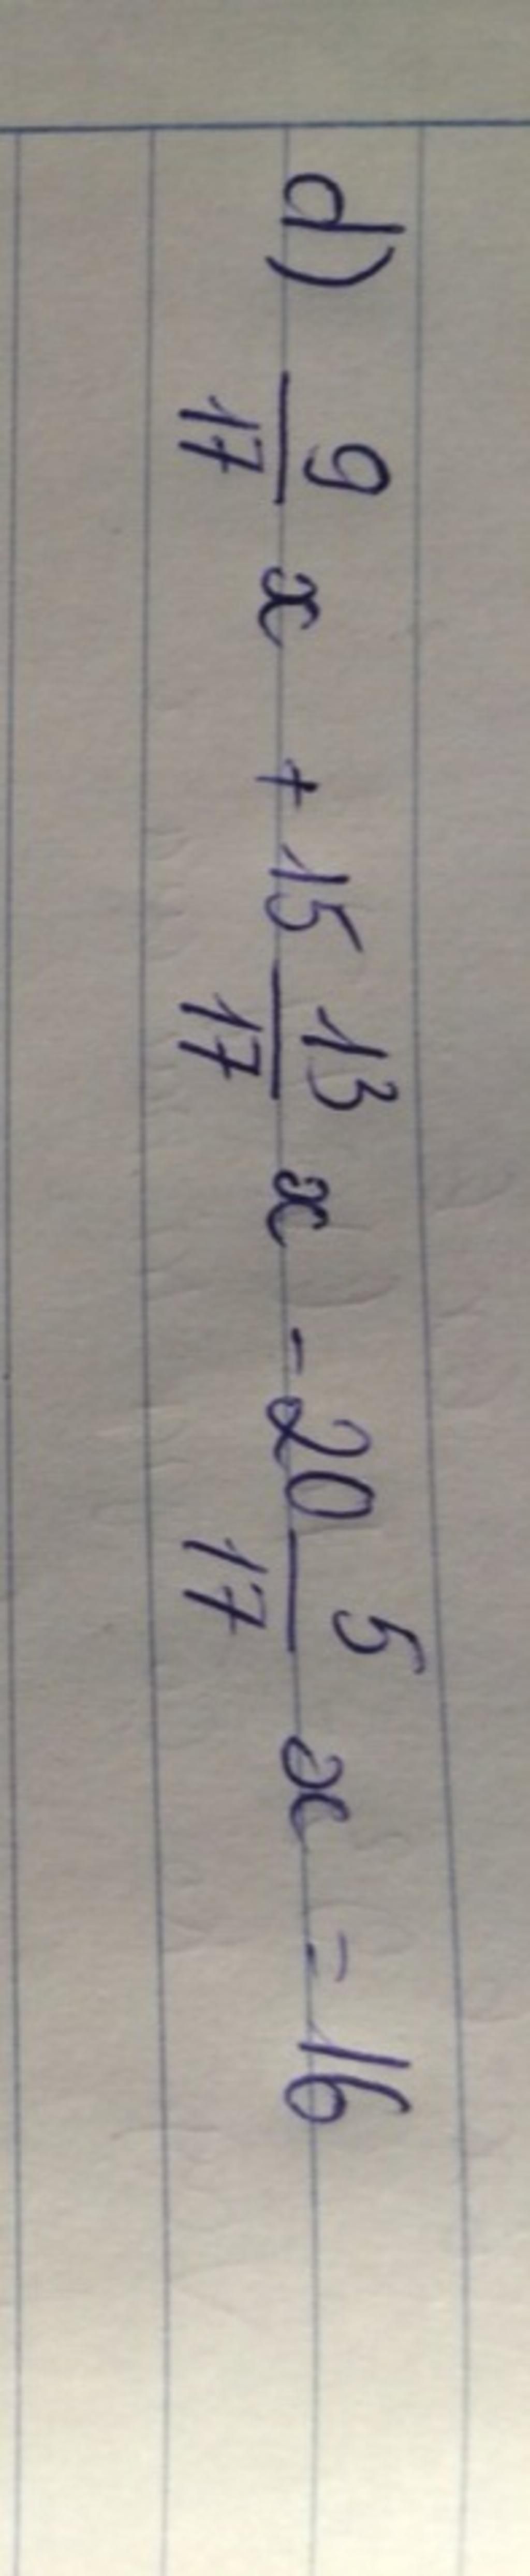 d) 9/17 x + 15 13/17 x - 20 5/17 x = 16